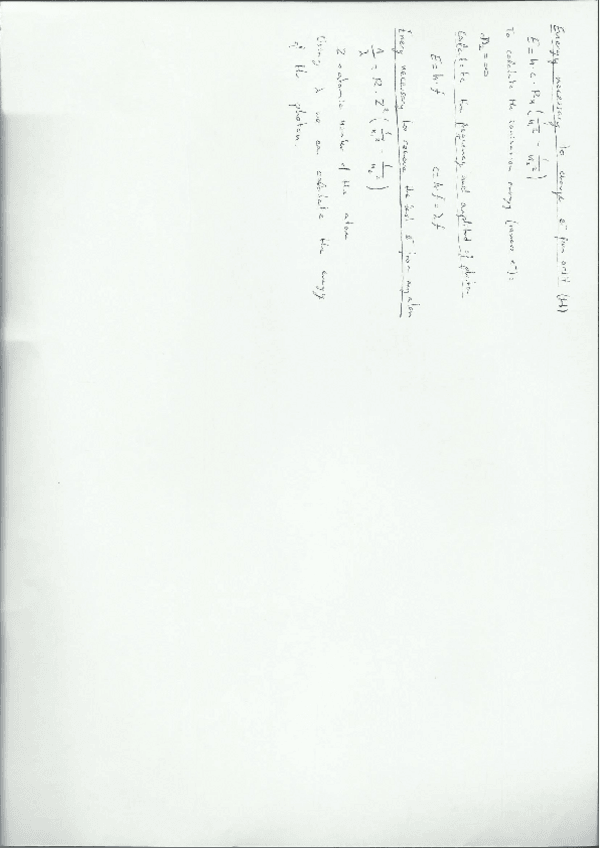 Energy necessary to change e⁻ from orbit (H)
E = h·c·R_H (1/n₁² - 1/n₂²)
To calculate the ionization energy (remove e⁻):
n₂ = ∞
Calculate the frequency and amplitud of photon
E = h·f c = λ·f = λf
Energy necessary to remove the last e⁻ from any atom
1/λ = R · Z² (1/n₁² - 1/n₂²)
Z = atomic number of the atom
Using λ we can calculate the energy
of the photon.